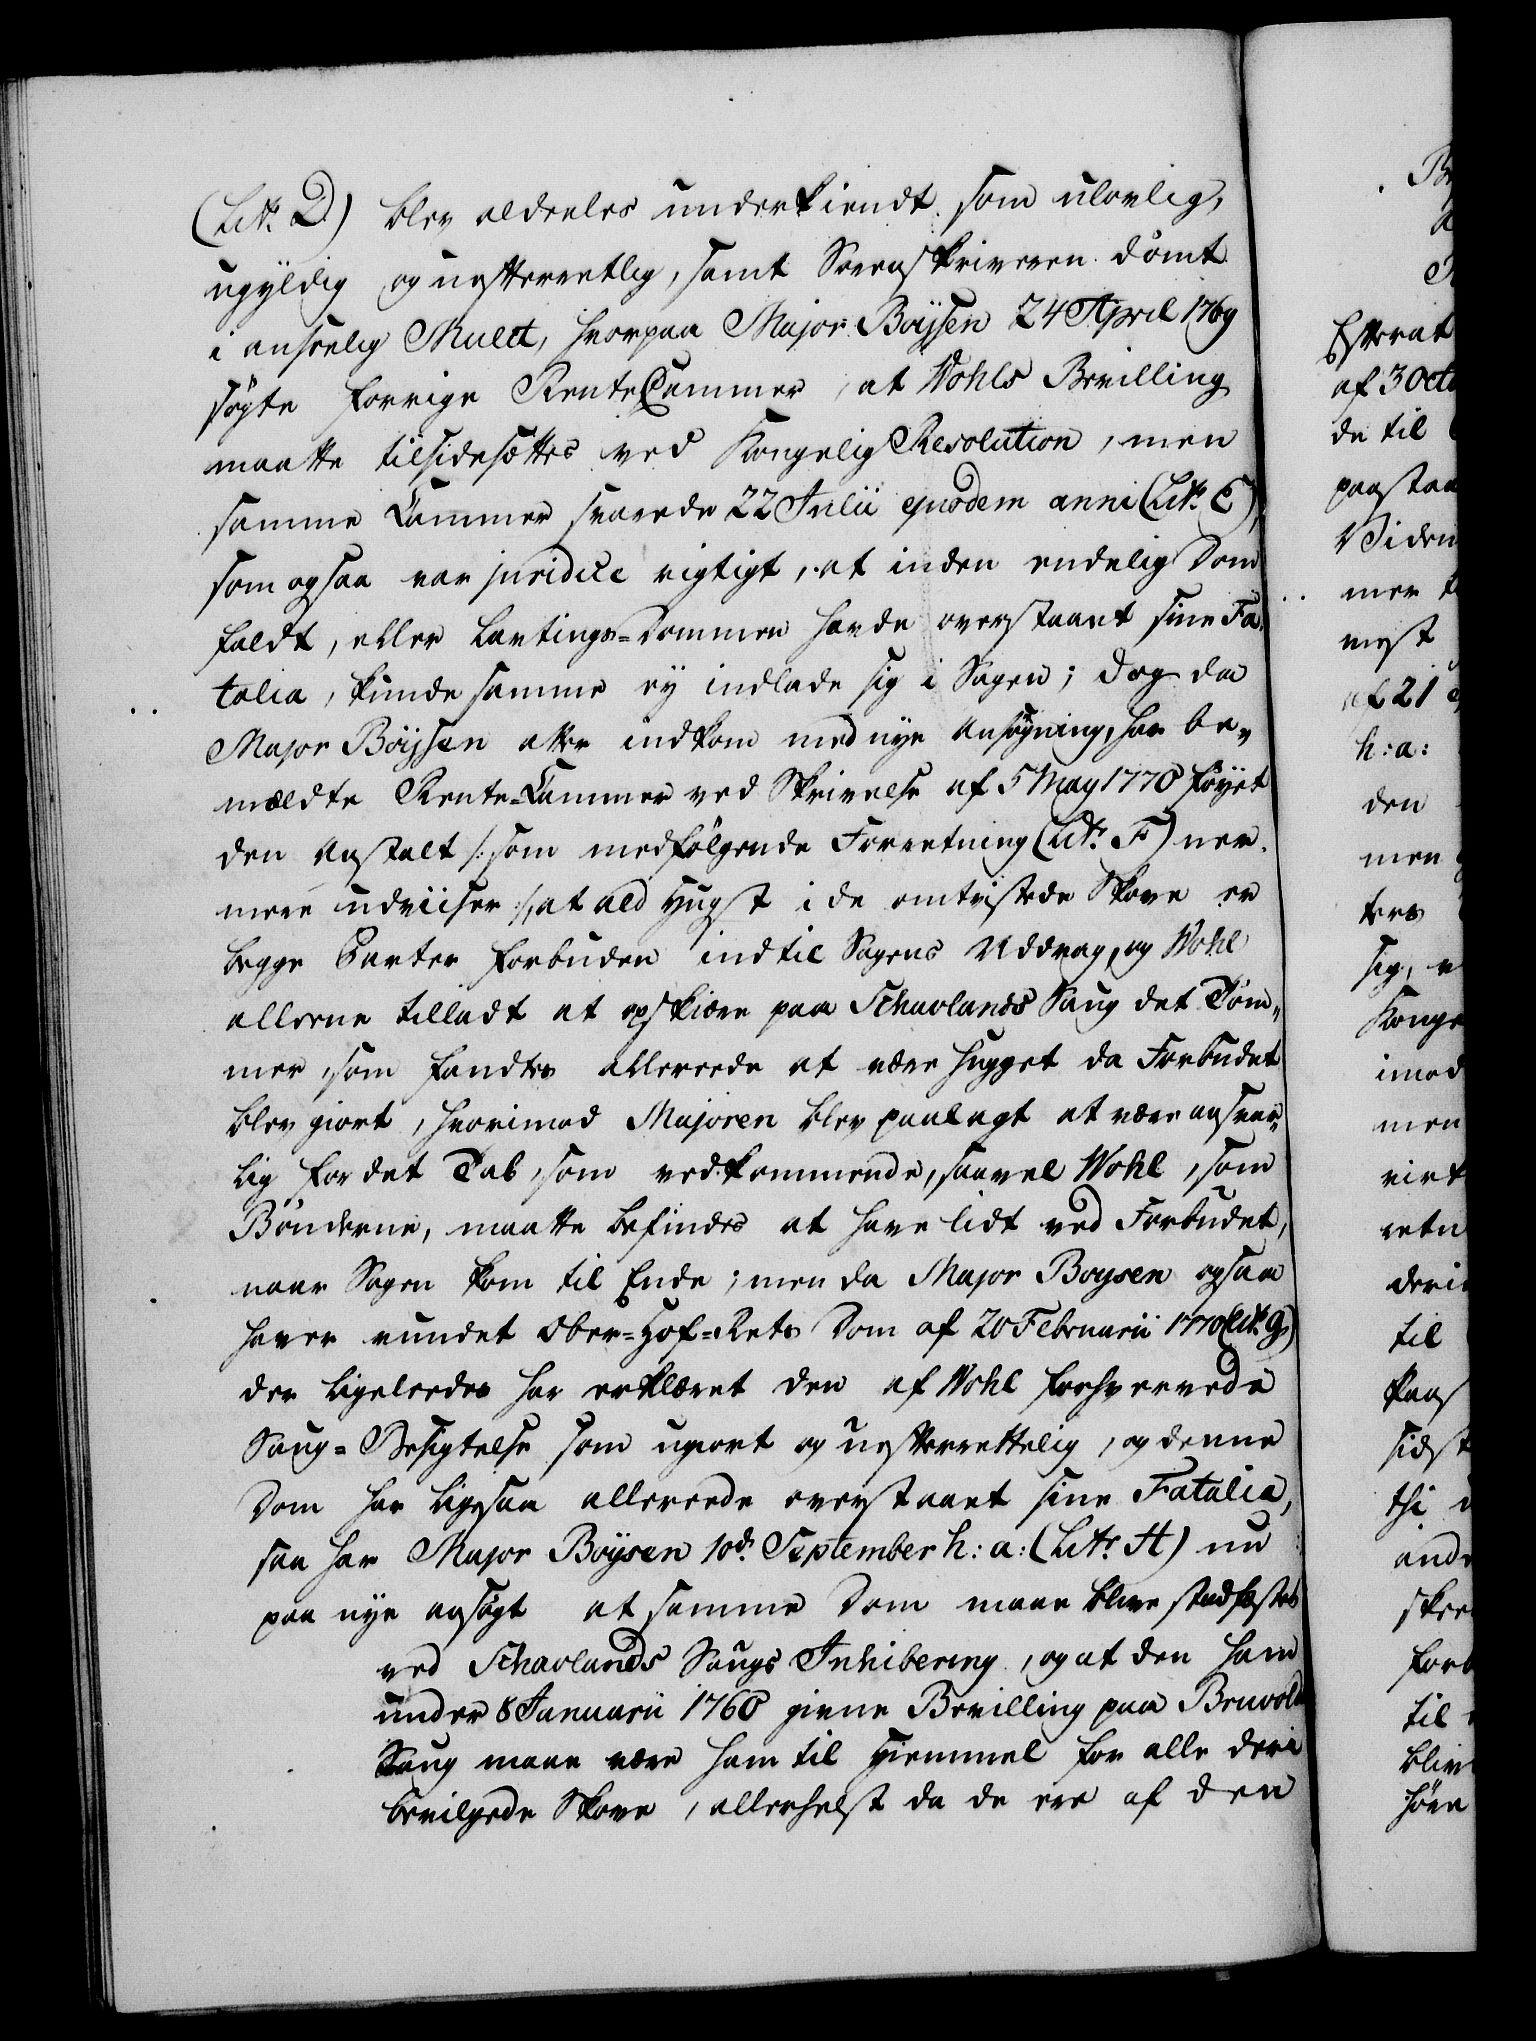 (Litr. D.) blev aldeeles underkiendt som ulovlig,
ugyldig og uefterretlig, samt Sorenskriveren dømt
i anseelig Mulct, hvorpaa Major Boysen 24 April 1769
søgte forrige RenteCammer, at Wohls Bevilling
maatte tilsidesættes ved Kongelig Resolution, men
samme Cammer svarede 22 Julii ejusdem anni (Litr. E),
som ogsaa var juridice rigtigt, at inden endelig Dom
faldt, eller Lavtings-Dommen havde overstaaet sine Fa-
talia, kunde samme ey indlade sig i Sagen; dog da
Major Boysen atter indkom med nye Ansøgning, har be-
meldte Rente-Cammer ved Skrivelse af 5 May 1770 føyet
den Anstalt /: som medfølgende Forretning (Litr. F) ner-
mere udviiser :/, at ald Hugst i de omtvistede Skove er
begge Parter forbuden indtil Sagens Uddrag, og Wohl
alleene tilladt at opskiære paa Schavlands Saug det Tøm-
mer, som fandtes allereede at være hugget da Forbudet
blev giort, hvorimod Majoren blev paalagt at være ansvar-
lig for det Tab, som vedkommende, saavel Wohl, som
Bønderne, maatte befindes at have lidt ved Forbudet,
naar Sagen kom til Ende; men da Major Boysen ogsaa
haver vundet Ober-Hof-Rets Dom af 20 Februarii 1770 (Litr. G)
der ligeleedes har erklæret den af Wohl forhvervede
Saug-Besigtelse som ugiort og uefterrettelig, og denne
Dom har ligesaa allereede overstaaet sine Fatalia,
saa har Major Boysen 10de September h: a: (Litr. H) nu
paa nye ansøgt at samme Dom maae blive stadfæstet
ved Schavlands Saugs Inhibering, og at den ham
under 8 Januarii 1760 givne Bevilling paa Bruvold
Saug maae være ham til Hiemmel for alle deri
bevilgede Skove, allerhelst da de ere af den